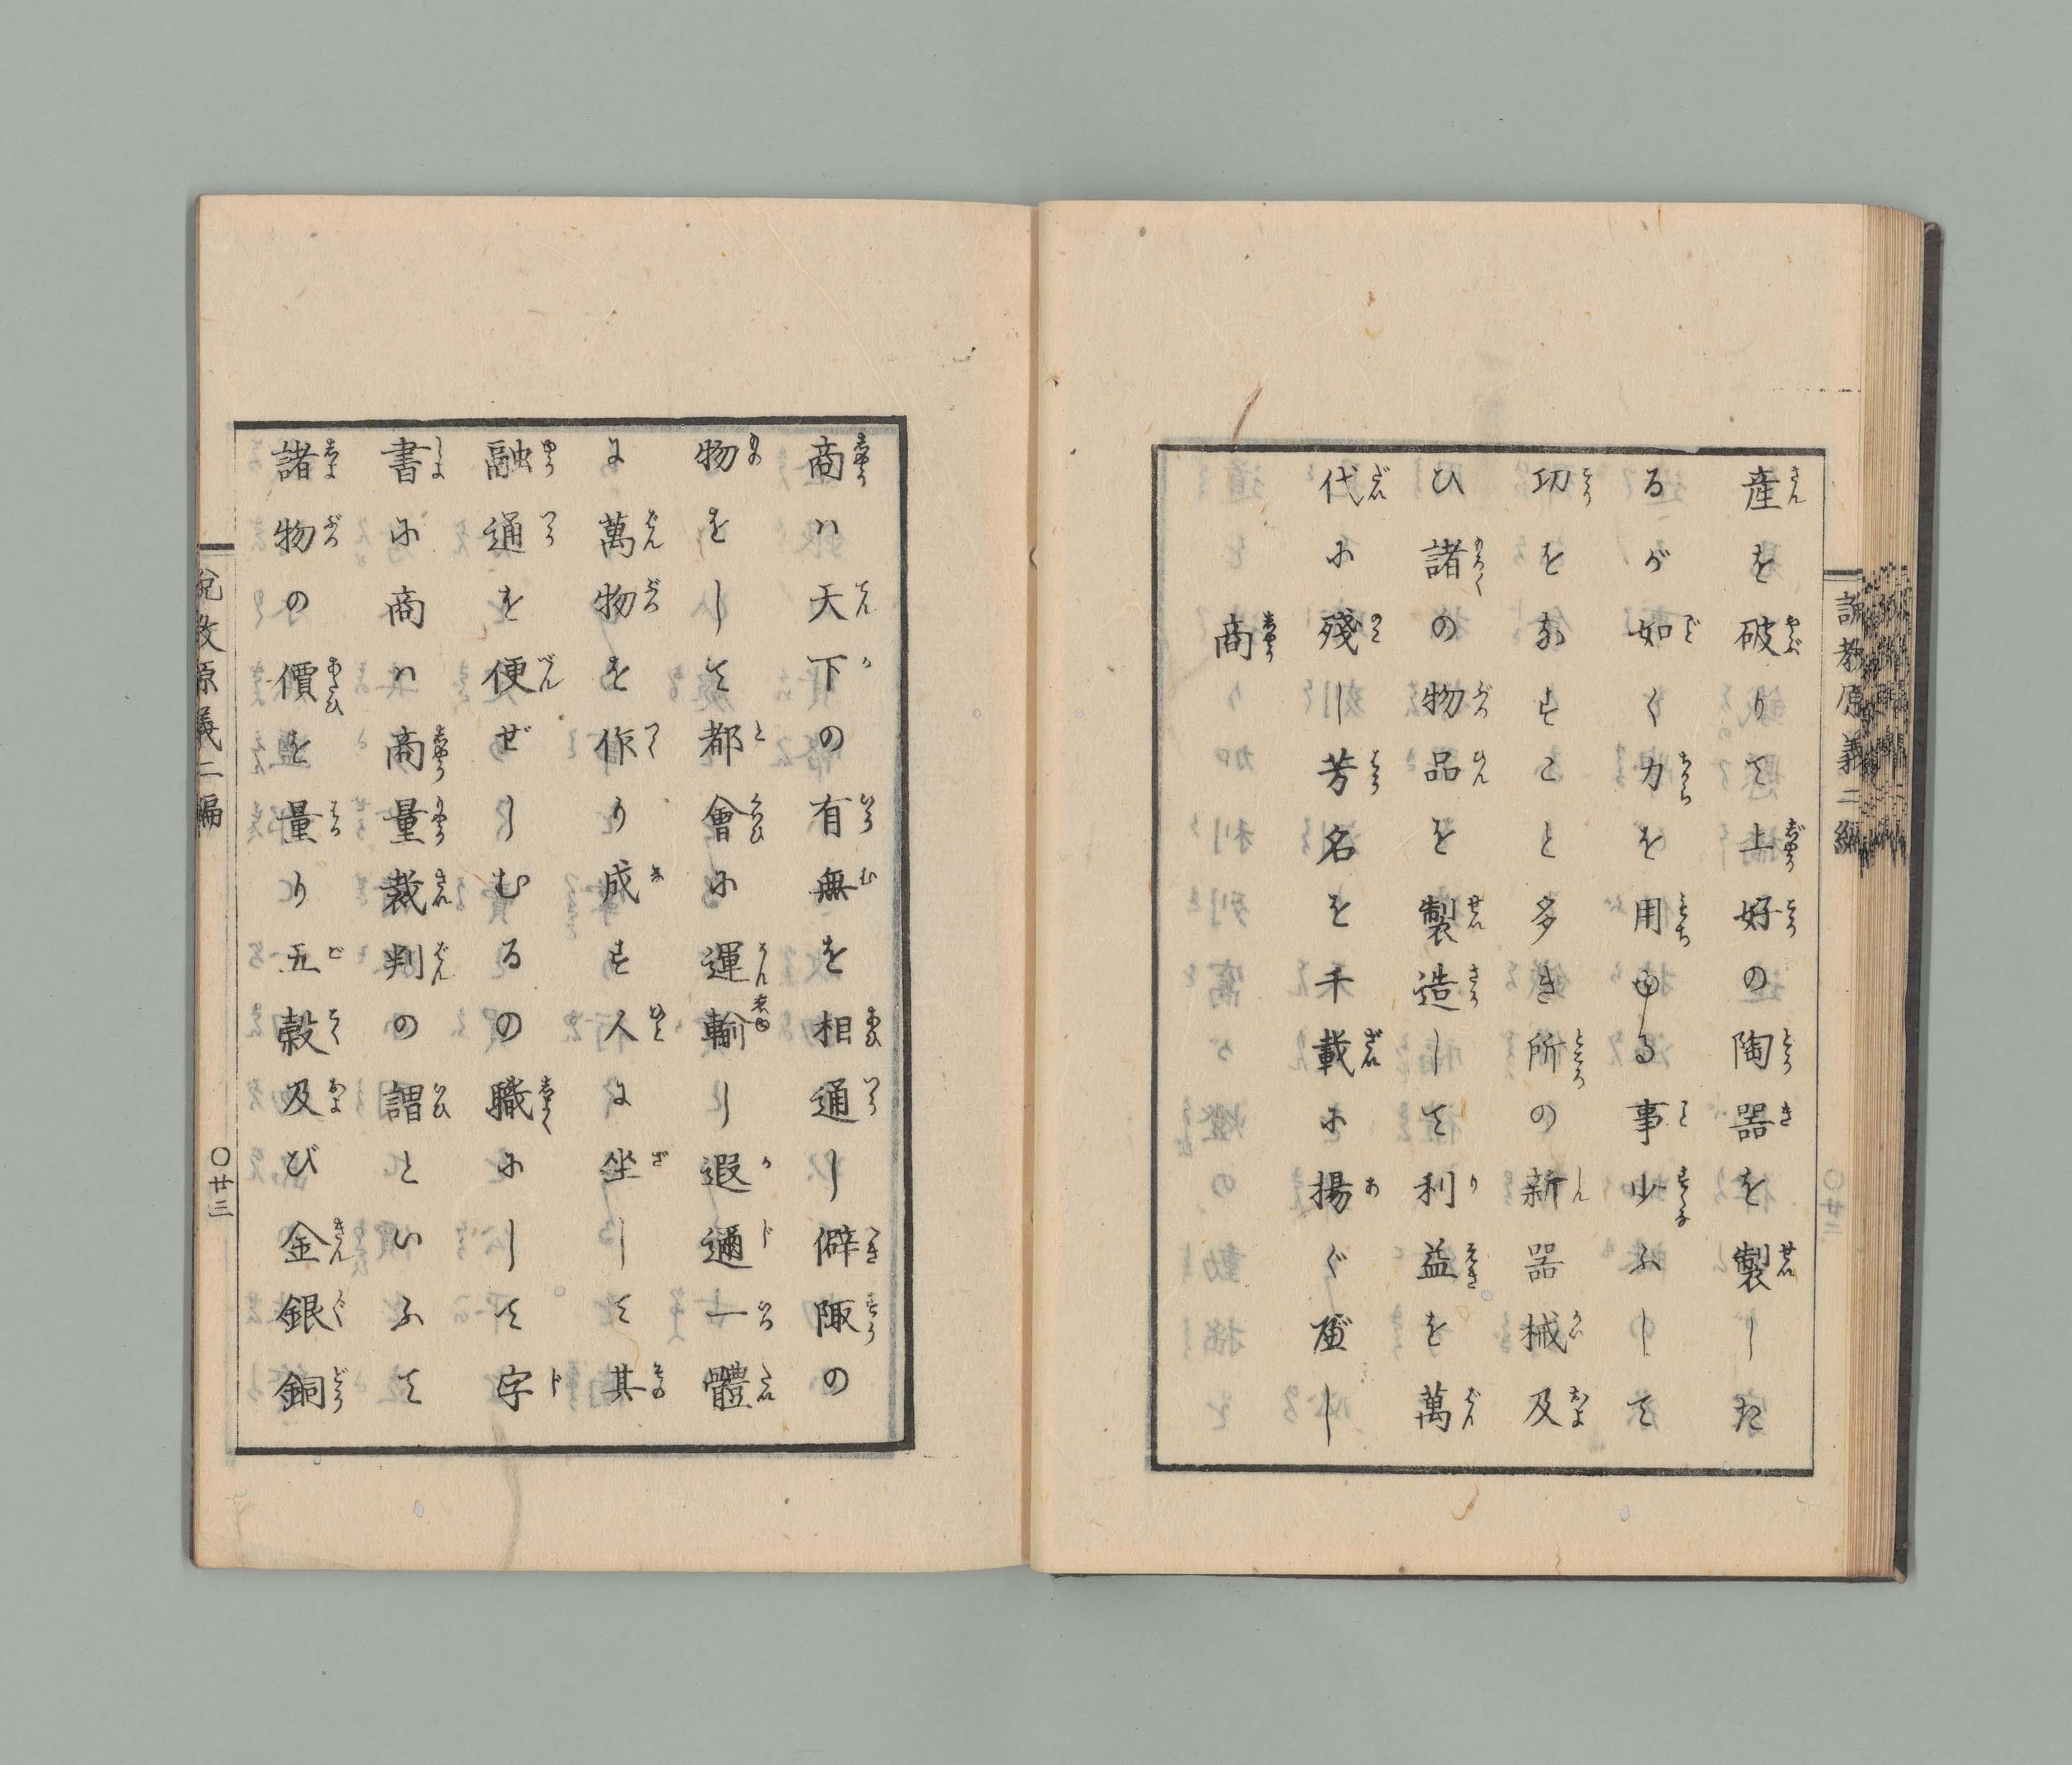 産を破りて上好の陶器を製した
るが如く力を用ゆる事少ふして
功をなすこと多き所の新器械及
ひ諸の物品を製造して利益を萬
代に殘し芳名を千載に揚ぐべし
商
商ハ天下の有無を相通し僻陬の
物をして都會に運輸し遐邇一體
に萬物を作り成す人に坐して其
融通を便ぜしむるの職にして字
書に商ハ商量裁判の謂といふて
諸物の價を量り五穀及び金銀銅
說教原義二編
〇廿三